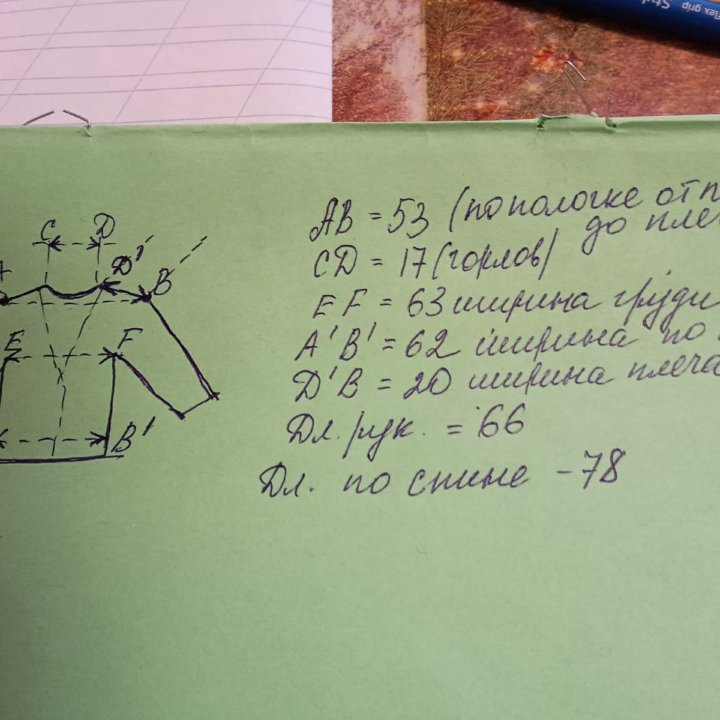 C D
D'
B
E F
B'
AB = 53 (по полочке от п
до пле
CD = 17 (горлов)
EF = 63 ширина груди
A'B' = 62 ширина по
D'B = 20 ширина плеча
Дл. рук. = 66
Дл. по спине - 78
flex grip